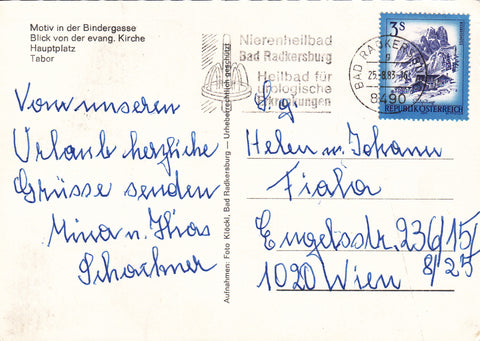 Motiv in der Bindergasse
Blick von der evang. Kirche
Hauptplatz
Tabor
Vom unseren
Urlaub herzliche
Grüsse senden
Mina u. Ilias
Schachner
Aufnahmen: Foto Kitecki, Bad Radkersburg — Urheberrechtlich geschützt
Nierenheilbad
Bad Radkersburg
Heilbad für
urologische
Erkrankungen
BAD RADKERSBURG
25.-8.83
8490
3 S
REPUBLIK ÖSTERREICH
Sg
Helen u. Johann
Fiala
Engelsstr. 236/15/
8/25
1020 Wien